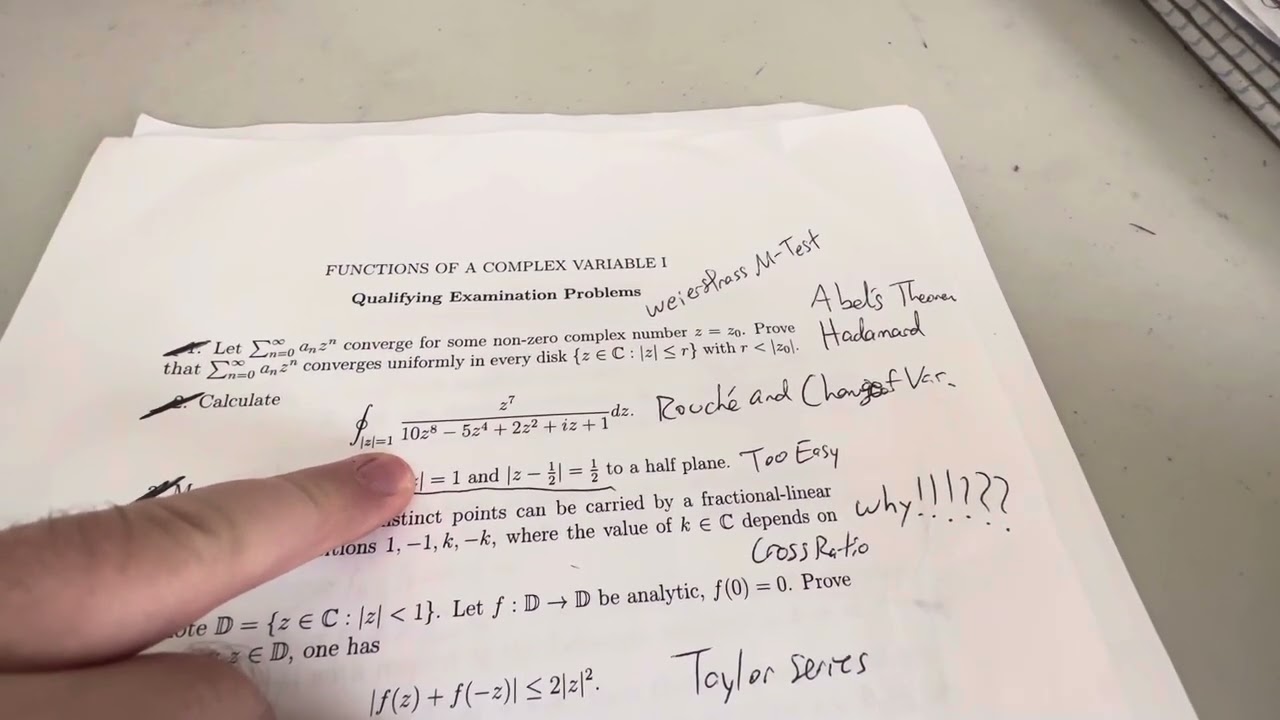 FUNCTIONS OF A COMPLEX VARIABLE I
Qualifying Examination Problems
Weierstrass M-Test
1. Let ∑_{n=0}^{∞} a_n z^n converge for some non-zero complex number z = z_0. Prove
that ∑_{n=0}^{∞} a_n z^n converges uniformly in every disk {z ∈ ℂ : |z| ≤ r} with r < |z_0|.
Abel's Theorem
Hadamard
2. Calculate
∮_{|z|=1} z^7 / (10z^8 − 5z^4 + 2z^2 + iz + 1) dz.
Rouché and Change of Var.
| = 1 and |z − 1/2| = 1/2 to a half plane.
Too Easy
points can be carried by a fractional-linear
1, −1, k, −k, where the value of k ∈ ℂ depends on
why!!!???
Cross Ratio
𝔻 = {z ∈ ℂ : |z| < 1}. Let f : 𝔻 → 𝔻 be analytic, f(0) = 0. Prove
z ∈ 𝔻, one has
|f(z) + f(−z)| ≤ 2|z|^2.
Taylor series